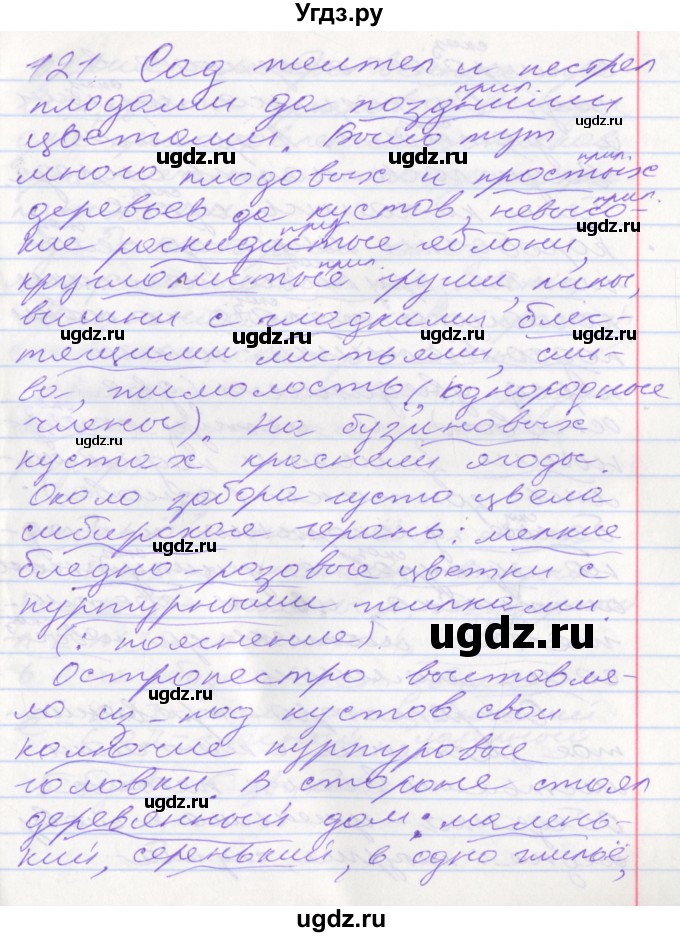 Угдз.ру
121 Сад желтел и пестрел
плодами да поздними
прил.
цветами. Было тут
много плодовых и простых
прил.
деревьев да кустов, невысо-
прил.
кие раскидистые яблони,
прил.
круглолистые груши, липы,
прил.
вишни с гладкими, блес-
тящими листьями, сли-
ва, жимолость (однородные
члены). На бузиновых
кустах краснели ягоды.
Около забора густо цвела
сибирская герань: мелкие
бледно-розовые цветки с
пурпурными жилками.
(: пояснение).
Остропестро выставля-
ло из-под кустов свои
колючие пурпуровые
головки. В стороне стоял
деревянный дом: малень-
кий, серенький, в одно жильё,
ugdz.ru
ugdz.ru
ugdz.ru
ugdz.ru
ugdz.ru
ugdz.ru
ugdz.ru
ugdz.ru
ugdz.ru
ugdz.ru
ugdz.ru
ugdz.ru
ugdz.ru
ugdz.ru